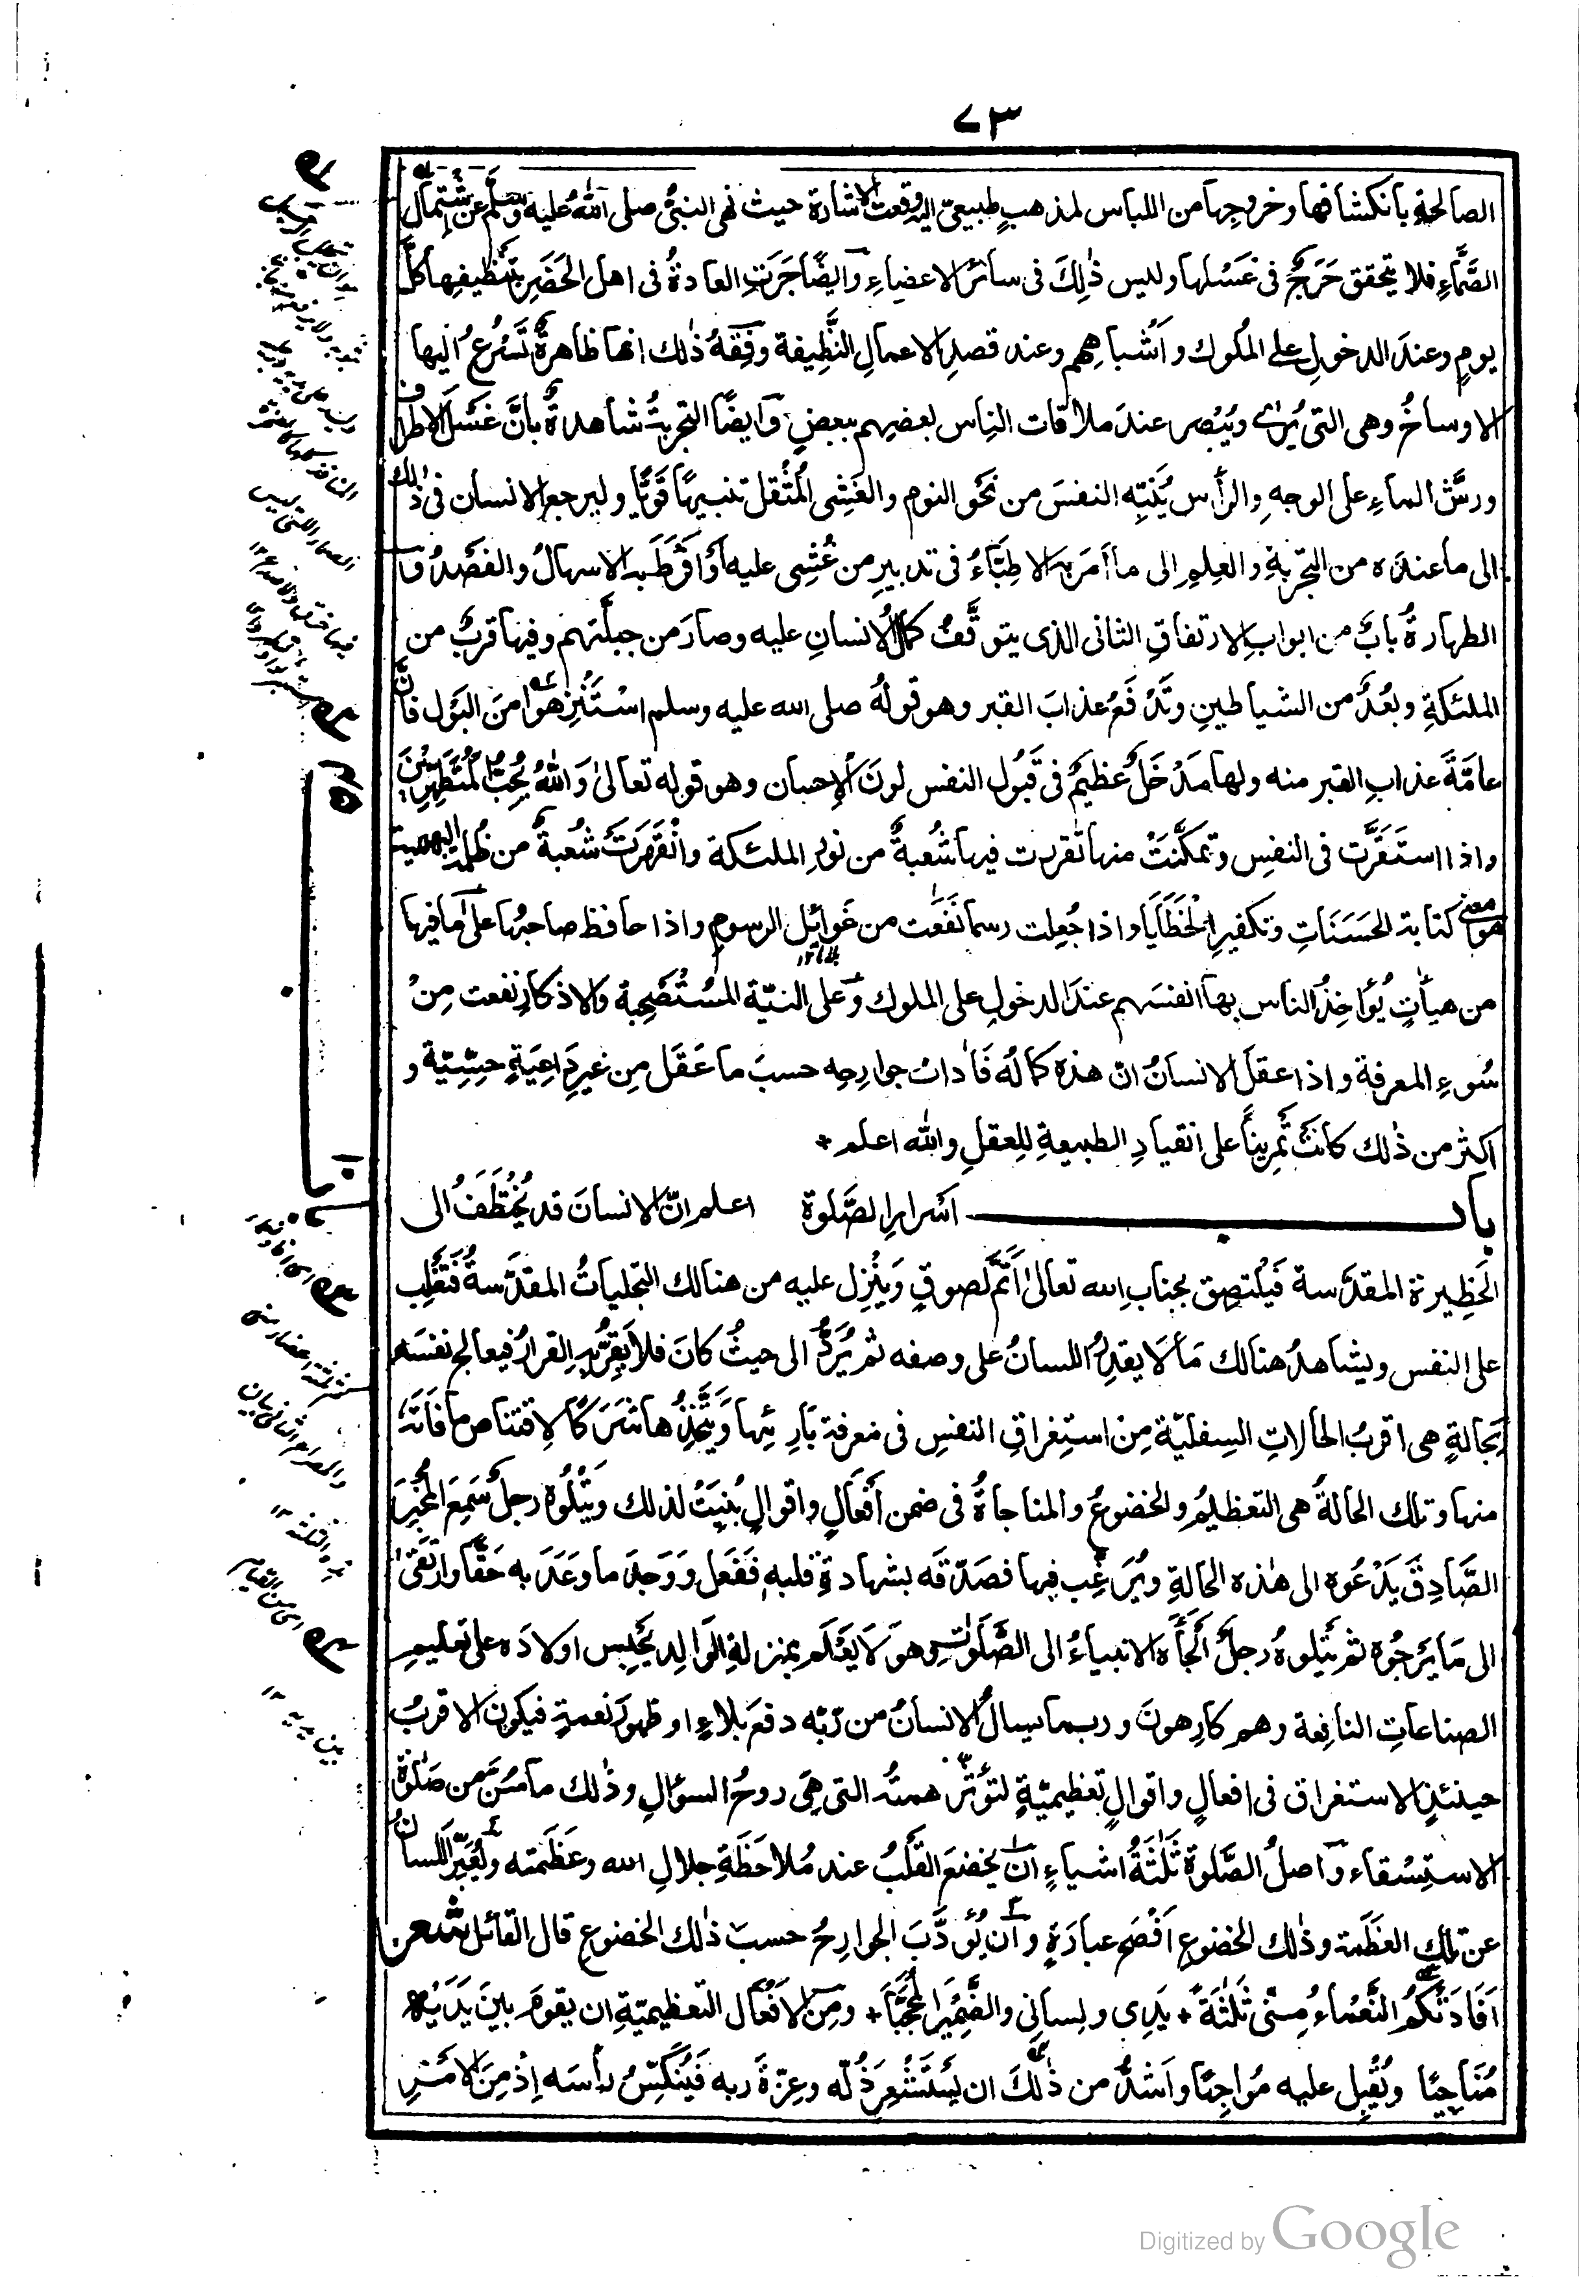 ٧٣
الصالحة بانكشافها وخروجها من اللباس لمذهب طبيعى اليه وقعت الاشارة حيث نهى النبىُّ صلى اللهُ عليه وسلم عن اشتمال
الصَّمَّاءِ فلا يتحقق حَرَجٌ فى غَسْلها وليس ذٰلِكَ فى سائر الاعضاءِ وايضًا جَرَتِ العادةُ فى اهل الحَضَرِ بتنظيفِها كلَّ
يومٍ وعندَ الدخولِ على المُلوك واَشْباهِهِم وعند قصدِ الاعمالِ النَّظِيفة وفِقْهُ ذٰلك انها ظاهرةٌ تَسْرُعُ اليها
الاوساخُ وهى التى يُرٰى ويُبْصر عندَ ملاقات الناس بعضِهم ببعضٍ وَايضًا التجربةُ شاهدةٌ بأنَّ غَسْلَ الاطراف
ورشَّ الماءِ على الوجهِ والرأس يُنَبِّه النفسَ من نَحَو النوم والغَشِى المُثْقل تنبيهًا قَويًّا وليرجعِ الانسان فى ذٰلك
الى ما عندَه من التجرِبةِ والعِلمِ الى ما اَمَرَ به الاطِبَّاءُ فى تدبيرِ من غُشِى عليه اَوْ اَفْرَطَ به الاسهالُ والفَصْدُ و
الطهارةُ بابٌ من ابوابِ الارتفاقِ الثانى الذى يتوقَّفُ كمالُ الانسانِ عليه وصارَ من جبلَّتهم وفيها قربٌ من
الملئكةِ وبعُدٌ من الشياطينِ وتَدْفَعُ عذابَ القبر وهو قولُهُ صلى الله عليه وسلم اسْتَنْزِهُوا مِنَ البَوْل فانَّ
عامَّةَ عذابِ القبر منه ولها مَدْخَلٌ عظيمٌ فى قَبُول النفس لونَ الاِحسان وهو قوله تعالىٰ وَاللّٰهُ يُحِبُّ المُتَطَهِّرِيْنَ
واذا استَقَرَّت فى النفسِ وتمكَّنَتْ منها تقررت فيها شُعبةٌ من نورِ الملئكة وانْقَهَرَتْ شعبةٌ من ظُلمة البهيمية
وهو معنى كتابة الحَسَنَاتِ وتكفيرِ الخَطَايَا واذا جُعِلت رسما نَفَعَت من غَوائِلِ الرسوم واذا حافظ صاحبُها على ما فيها
من هيأتٍ يُؤَاخِذُ الناس بها انفسَهم عندَ الدخولِ على الملوك وعلى النيّة المُسْتَصْحِبة والاذكارِ نفعت مِنْ
سُوءِ المعرفة واذا عقلَ الانسانُ انّ هذه كمالُه فَاَدابَ جوارِحِه حسبَ ما عَقَل مِن غيرِ دَاعِيَةٍ حِسِّيّة و
اكثر من ذٰلك كانَتْ تَمْرِينًا على انقيادِ الطبيعةِ للِعقلِ والله اعلم +
باب اَسْرارِ الصَّلوة اعلم انّ الانسانَ قد يُخْتَطَفُ الى
الحَظِيرة المقدّسة فَيَلْتصِق بجنابِ الله تعالىٰ اَتَمَّ لُصوقٍ وَيَنْزِل عليه من هنالك التجلياتُ المقدَّسةُ فتَغْلِب
على النفس ويشاهدُ هنالك مَا لَا يقدِرُ اللسانُ على وصفه ثم يُرَدُّ الى حيثُ كانَ فلا يَقِرُّ به القرارُ فيعالج نفسَه
بِحالةٍ هى اقربُ الحالاتِ السِفليّة مِنْ استِغراقِ النفسِ فى معرفة بَارِئِها ويَتَّخِذُها شَرَكًا لاِقتناصِ ما فَاتَه
منها وتلك الحالةُ هى التعظيمُ والخضوعُ والمناجاةُ فى ضمن اَفْعَالٍ واقوالٍ بُنِيَتْ لذلك ويَتْلُوه رجلٌ سَمِعَ المُخْبِرَ
الصَّادِقَ يَدْعُوه الى هٰذه الحالةِ ويُرَغِّب فيها فصَدّقَه بشهادةِ قلبهِ فَفَعَل ووَجدَ ما وَعَدَ به حَقًّا وارْتَقىٰ
الى مَا يَرجُوه ثم يَتْلوهُ رجلٌ اَلْجَأَهُ الانبياءُ الى الصَّلوٰتِ وهوَ لَا يَعْلَم بمنزلةِ الوَالِدِ يَحْبِس اولادَه على تعليمِ
الصناعاتِ النافِعة وهم كارِهونَ وربما يسالُ الانسانُ من رّبّه دفعَ بَلاءٍ او ظهورَ نعمةٍ فيكون الاقربُ
حينئذٍ الاستغراق فى افعالٍ واقوالٍ تعظيميّةٍ لتؤثّر همتُه التى هِىَ روحُ السؤالِ وذٰلك ما سُنَّ من صَلٰوة
الاستِسْقاء واصلُ الصَّلٰوة ثَلٰثَةُ اشياءٍ انْ يخضعَ القَلْبُ عند مُلاحَظَةِ جلالِ الله وعَظَمته ويُعَبِّرَ اللسانُ
عن تلك العَظَمة وذٰلك الخضوعِ اَفْصَحِ عبارَةٍ واَن يُؤدَّبَ الجوارِحُ حسبَ ذٰلك الخضوعِ قال القائل شعر
اَفَادَتْكُمُ النَّعْمَاءُ مِنّى ثَلٰثَةً + يَدِى ولِسانِى والضَّمِيْرَ المُحَجَّبَا + ومِنَ الاَفْعَال التعظيميّةِ ان يقومَ بينَ يَدَيْهِ
مُنَاجِيًا ويُقْبِل عليه مُواجِهًا واَشدُّ من ذٰلكَ ان يَسْتَشْعِرَ ذُلَّه وعِزّةَ ربه فَيُنَكِّسُ رأسَه إِذْ مِنَ الاَمْرِ
Digitized by Google